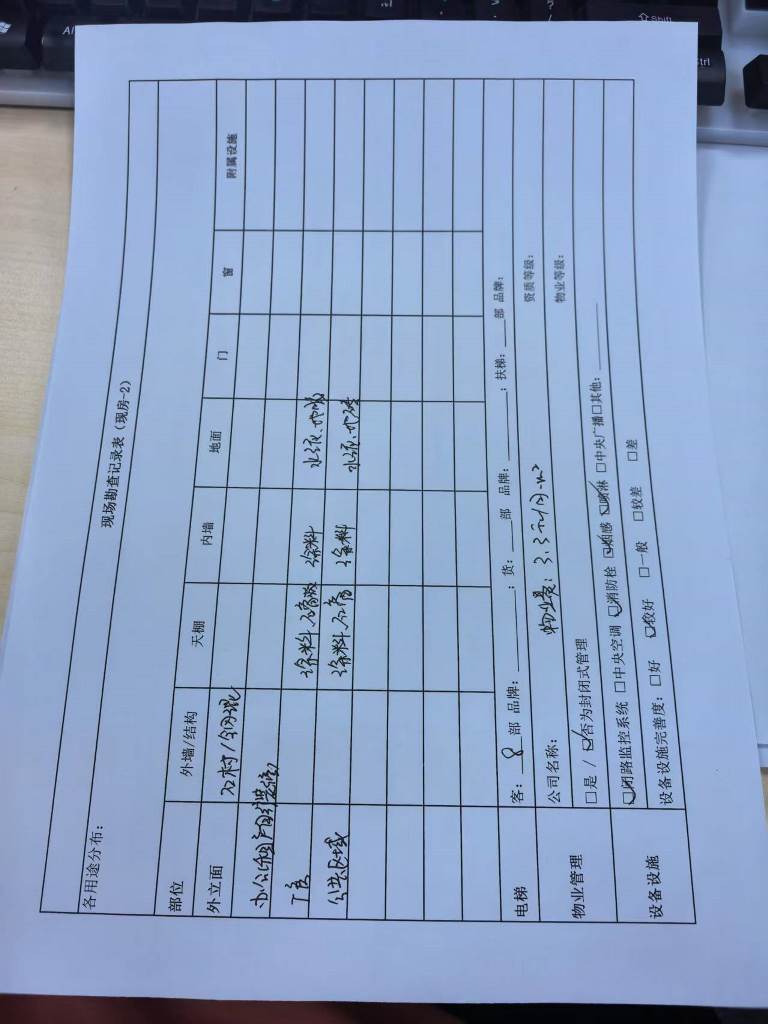 现场勘查记录表（现房-2）
各用途分布：
部位 外墙/结构 天棚 内墙 地面 门 窗 附属设施
外立面 石材/钢混
办公（租户自行装修）
厂房 涂料、石膏板 涂料 水泥、地砖
公共区域 涂料、石膏 涂料 水泥、地砖
电梯 客：8部 品牌：；货：部 品牌：；扶梯：部 品牌：
物业管理 公司名称： 物业费：3.3元/月·m² 资质等级：
□是 / ☑否为封闭式管理 物业等级：
设备设施 ☑闭路监控系统 □中央空调 ☑消防栓 ☑烟感 ☑喷淋 □中央广播 □其他：
设备设施完善度：□好 ☑较好 □一般 □较差 □差